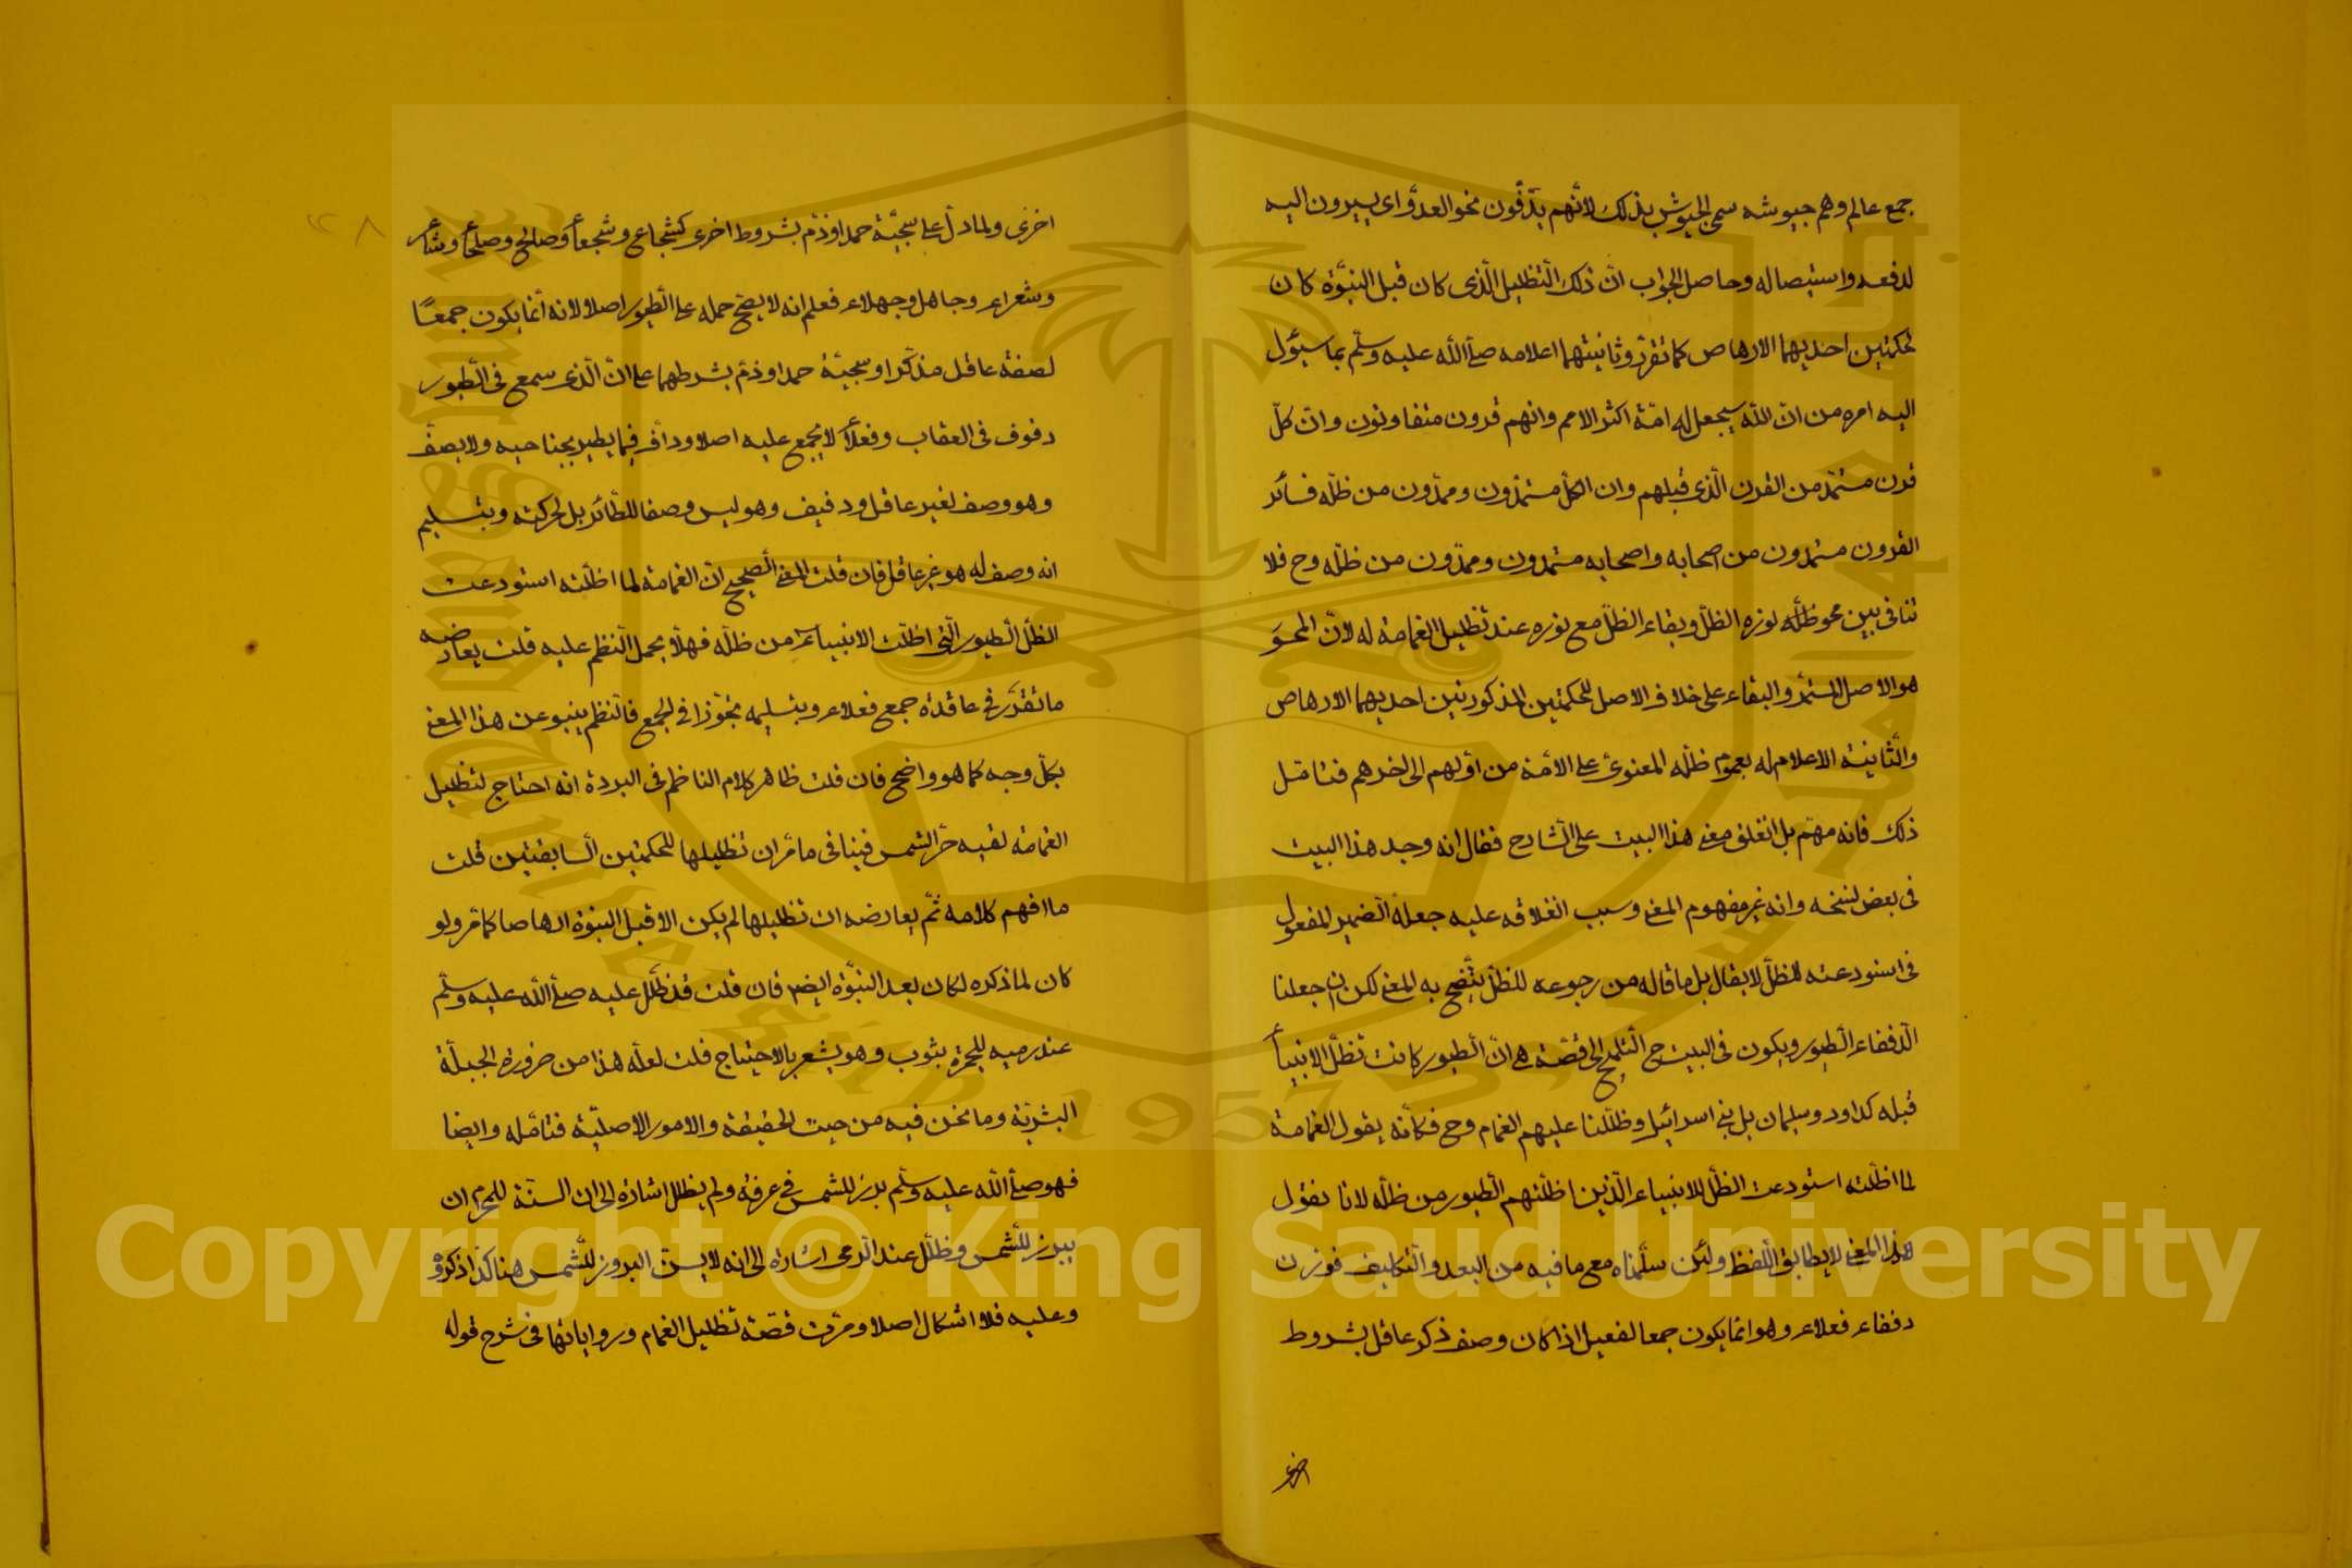 جمع عالم وهم جيوشه سمى الجيوش بذلك لانهم يدّفّون نحو العدوّ اى يسيرون اليه
لدفعه واستيصاله وحاصل الجواب انّ ذلك التظليل الّذى كان قبل النبوّة كان
لحكمتين احديهما الارهاص كما تقرّر وثانيتهما اعلامه صلّى الله عليه وسلّم بما سيؤل
اليه امره من انّ الله سيجعل له امّة اكثر الامم وانهم قرون متفاوتون وانّ كلّ
قرن مستمدّ من القرن الّذى قبلهم وان الكلّ مستمدّون وممدّون من ظلّه فسائر
القرون مستمدون من اصحابه واصحابه مستمدون وممدّون من ظلّه وح فلا
تنافى بين محو ظلّه نوره الظلّ وبقاء الظلّ مع نوره عند تظليل الغمامة له لانّ المحوَ
هو الاصل المستمرّ والبقاء على خلاف الاصل للحكمتين المذكورتين احديهما الارهاص
والثّانية الاعلام له بعموم ظلّه المعنوىّ على الامّة من اوّلهم الى اخرهم فتامّل
ذلك فانه مهمّ بل انغلق معنى هذا البيت على الشارح فقال انه وجد هذا البيت
فى بعض نسخه وانه غير مفهوم المعنى وسبب انغلاقه عليه جعله الضمير المفعول
فى استودعته للظلّ لا يقال بل ما قاله من رجوعه للظلّ يتّضح به المعنى لكن ان جعلنا
الدّففاء الطيور ويكون فى البيت ح التلميح الى قصّة هى انّ الطيور كانت تظلّ الانبياء
قبله كداود وسليمان بل بنى اسرائيل وظلّلنا عليهم الغمام وح فكأنّه يقول الغمامة
لما اظلّته استودعت الظلّ للانبياء الّذين اظلّتهم الطيور من ظلّه لانا نقول
هذا المعنى لا يطابق اللّفظ ولئن سلّمناه مع ما فيه من البعد والتكليف فوزن
دففاء فعلاء وهو انّما يكون جمعا لفعيل اذا كان وصف ذكر عاقل بشروط
اخرى
اخرى ولما دلّ على سجيّة حمد او ذمّ بشروط اخرى كشجاع وشجعاء وصالح وصلحاء وشاعر
وشعراء وجاهل وجهلاء فعلم انه لا يصحّ حمله على الطّيور اصلا لانه انّما يكون جمعًا
لصفة عاقل مذكّر او سجيّة حمد او ذمّ بشرطهما على انّ الّذى سمع فى الطّيور
دفوف فى العقاب وفعلاء لا يجمع عليه اصلا ودافّ فيما يطير بجناحيه ولا يصفّ
وهو وصف لغير عاقل ودفيف وهو ليس وصفا للطّائر بل لحركته وبتسليم
انه وصف له هو غير عاقل فان قلت المعنى الصّحيح انّ الغمامة لما اظلّته استودعت
الظلّ الطيور الّتى اظلّت الانبياء من ظلّه فهلّا يحمل النظم عليه قلت يعارضه
ما تقرّر فى عاقدة جمع فعلاء وبتسليمه تجوّزا فى الجمع فالنظم ينبو عن هذا المعنى
بكلّ وجه كما هو واضح فان قلت ظاهر كلام الناظم فى البردة انه احتاج لتظليل
الغمامة لتقيه حرّ الشمس فينافى ما مرّ ان تظليلها للحكمتين السّابقتين قلت
ما افهم كلامه ثمّ يعارضه ان تظليلها لم يكن الا قبل النبوّة ارهاصا كما مرّ ولو
كان لما ذكره لكان بعد النبوّة ايضا فان قلت قد ظلّل عليه صلّى الله عليه وسلّم
عند رميه للجمرة بثوب وهو يشعر بالاحتياج قلت لعلّه هذا من ضرورة الجبلّة
البشريّة وما نحن فيه من حيث الحقيقة والامور الاصليّة فتامّله وايضا
فهو صلّى الله عليه وسلّم برز للشمس فى عرفة ولم يظلل اشارة الى ان السنّة للمحرم ان
يبرز للشّمس وظلّل عند الرّمى اشارة الى انه لا يسنّ البروز للشّمس هنا كذا ذكروه
وعليه فلا اشكال اصلا ومرّت قصّة تظليل الغمام ورواياتها فى شرح قوله
Copyright © King Saud University
King Saud University
1957